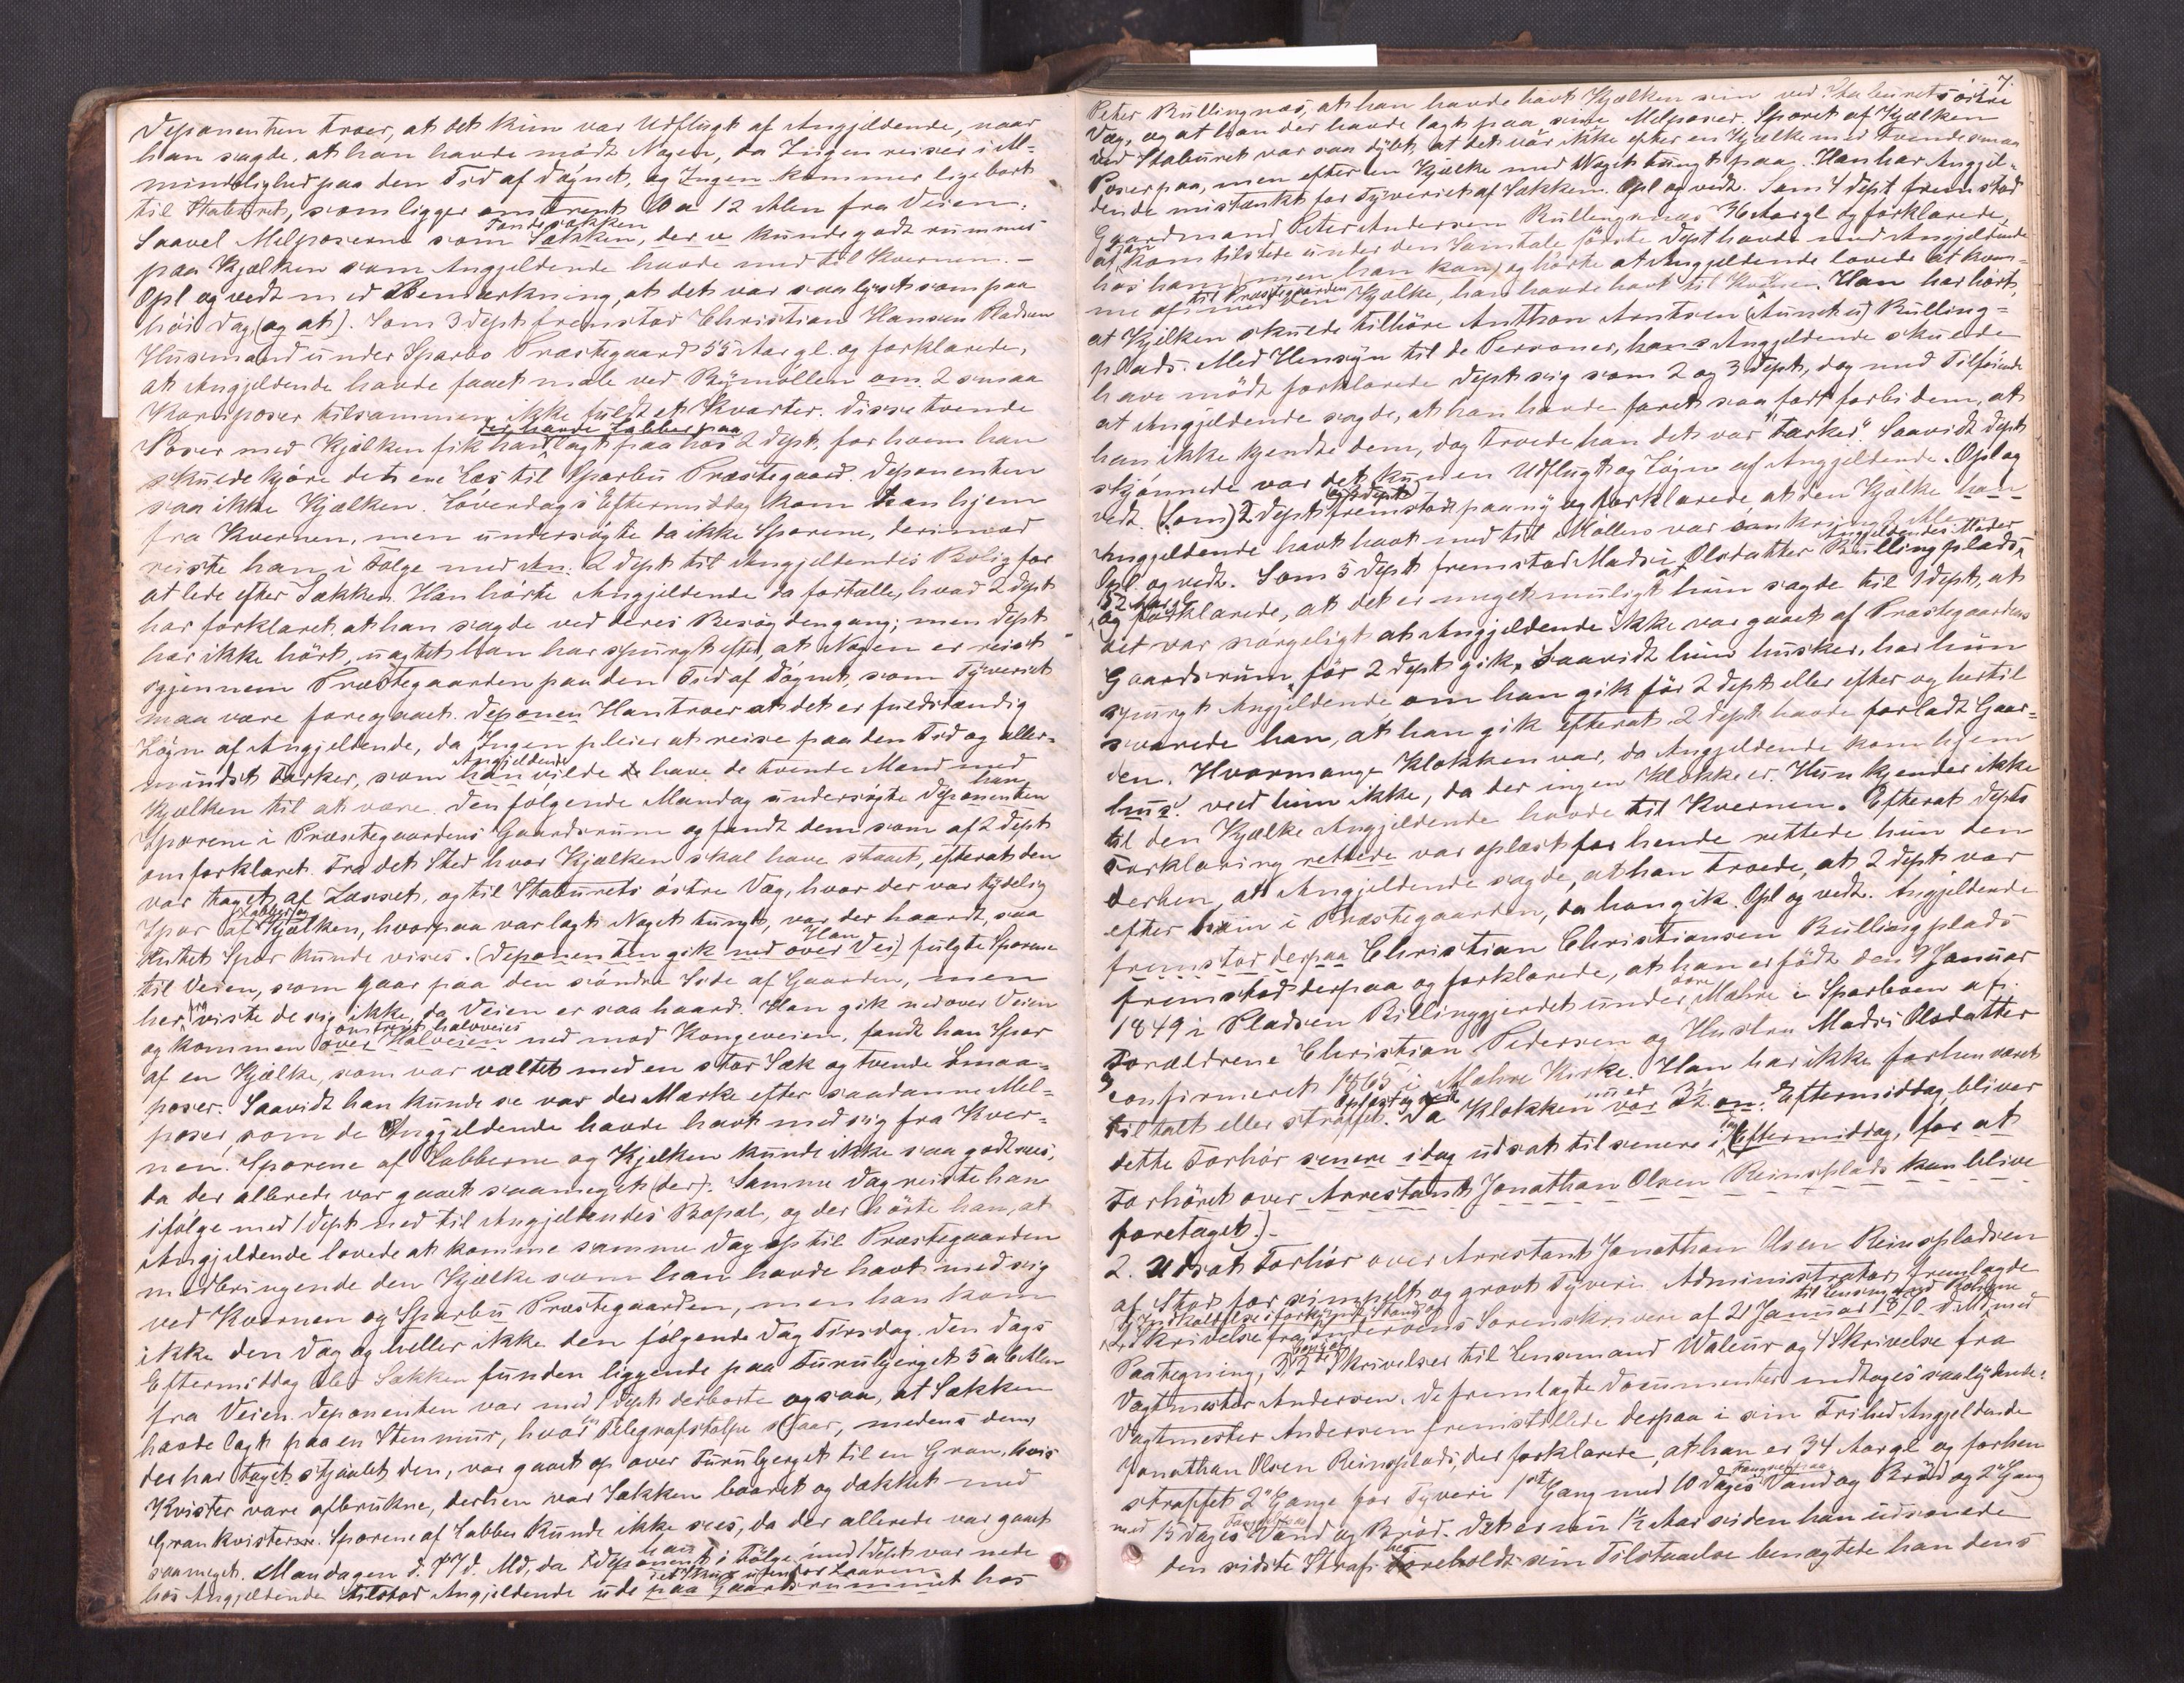 Deponenten troer, at det kun var Udflugt af Angjeldende, naar
han sagde, at han havde mödt Nogen, da Ingen reiser i Al-
mindelighed paa den Tid af Dögnet, og Ingen kommer ligebort
til Stabüret, som ligger omtrent 10 a 12 Alen fra Veien.
Saavel Melposerne som Tondesækken Sækken, der v kunde godt rummes
paa Kjælken som Angjeldende havde med til Kvernen. -
Opl og vedt med Bemærkning, at det var saa lyst som paa
höi Dag (og at). Som 3 dept fremstod Christian Hansen Pladsen
Husmand under Sparbo Præstegaard 55 Aar gl. og forklarede,
at Angjeldende havde faaet male ved Bymöllen om 2 smaa
Kornposer tilsammen ikke fuldt et Kvarter. Disse tvende
Poser med Kjælken fik han der havde Labber paa lagt paa hos 2 dept, for hvem han
skulde kjöre det ene Læs til Sparbu Præstegaard. Deponenten
saa ikke Kjælken. Löverdags Eftermiddag kom han hjem
fra Kvernen, men undersögte da ikke Sporene, derimod
reiste han i Fölge med An. 2 dept til Angjeldendes Bolig for
at lede efter Sækken. Han hörte Angjeldende da fortælle, hvad 2 dept
har forklaret, at han sagde ved deres Besög dengang; men dept
har ikke hört, uagtet han har spurgt efter, at Nogen er reist
igjennem Præstegaarden paa den Tid af Dögnet, som Tyveriet
maa være foregaaet. Deponen Han troer at det er fuldstændig
Lögn af Angjeldende, da Ingen pleier at reise paa den Tid og aller-
mindst Tærker, som han Angjeldende vilde de have de tvende Mænd med
Kjælken til at være. Den fölgende Mandag undersögte Deponenten han
Sporene i Præstegaardens Gaardsrum og fandt dem som af 2 dept
omforklaret. Fra det Sted hvor Kjælken skal have staaet, efterat den
var taget af Læsset, og til Stabürets östre Væg, hvor der var tydelig
Spor af Labber og Kjælken, hvorpaa var lagt Noget tungt, var der haardt, saa
Intet Spor kunde vises. (Deponenten gik ned over Vei) Han fulgte Sporene
til Veien, som gaar paa den söndre Side af Gaarden, men
her fra viste de sig ikke, da Veien er saa haard. Han gik ned over Veien
og kommen over Halveien omtrent halvveis ned mod Kongeveien, fandt han Spor
af en Kjælke, som var væltet med en stor Sæk og tvende Smaa-
poser. Saavidt han kunde se var der Mærke efter saadanne Mel-
poser, som de Angjeldende havde havt med sig fra Kver-
nen. Sporene af Labberne og Kjelken kunde ikke saa godt sees,
da der allerede var gaaet saameget (der). Samme Dag reiste han
ifölge med 1 dept ned til Angjeldendes Bopæl, og der hörte han, at
Angjeldende lovede at komme samme Dag op til Præstegaarden
medbringende den Kjælke som han havde havt med sig
ved Kvernen og Sparbu Præstegaarden, men han kom
ikke den Dag og heller ikke den fölgende Dag Tirsdag. Den Dags
Eftermiddag blev Sækken funden liggende paa Furubjerget 5 a 6 Alen
fra Veien. Deponenten var med 1 dept derborte og saa, at Sækken
havde lagt paa en Stenmur, hvor en Telegrafstolpe staar, medens den,
der har taget stjaalet den, var gaaet op over Furubjerget til en Gran, hvis
Kvister vare afbrukne, derhen var Sækken baaret og dækket med
Grankvisterne. Sporene af Labber kunde ikke sees, da der allerede var gaaet
saameget. Mandagen d. 17 d. Md, da Deponent han i Fölge med 1 dept var nede
hos Angjeldende tilstod Angjeldende ude paa Gaardsrummet hos
7.
Peter Bullingnæs, at han havde havt Kjælken sin ved Stabürets östre
Væg, og at han der havde lagt paa sine Melposer. Sporet af Kjælken
ved Stabüret var saa dybt, at det var ikke efter en Kjelke med tvende smaa
Poser paa, men efter en Kjelke med Noget tungt paa. Han har Angjel-
dende mistænkt for Tyveriet af Sækken. Opl og vedt. Som 4 dept fremstod
Gaardmand Peter Andersen Bullingnæs 36 Aar gl og forklarede,
at han kom tilstede under den Samtale förste dept havde med Angjeldende
hos ham (men han kan) og hörte at Angjeldende lovede at kom-
me op til Præstegaarden med den Kjælke, han havde havt til Kvernen. Han har hört,
at Kjelken skulde tilhöre Anthon Arntsen (Aunets) Bulling-
plads. Med Hensyn til de Personer, hans Angjeldende skulde
have mödt forklarede dept sig som 2 og 3 dept, dog med Tilföiende
at Angjeldende sagde, at han havde faret saa fort forbi dem, at
han ikke kjendte dem, dog troede han det var "Tærker". Saavidt dept
skjönnede var det kun en Udflugt og Lögn af Angjeldende. Opl og
vedt. (Som) 2 dept og 3 dept fremstod paany og forklarede, at den Kjælke han
Angjeldende havt havt med til Möllen var omkring 2 Al
Opl og vedt. Som 5 dept fremstod Madsi Olsdatter Bullingplads Angjeldendes Moder
52 Aar gl og forklarede, at det er meget muligt at hun sagde til 1 dept, at
det var sörgeligt at Angjeldende ikke var gaaet af Præstegaardens
Gaardsrum för 2 dept gik. Saavidt hun husker, har hun
spurgt Angjeldende om han gik för 2 dept eller efter og hertil
svarede han, at han gik efterat 2 dept havde forladt Gaar-
den. Hvormange Klokken var, da Angjeldende kom hjem
hus veed hun ikke, da der ingen Klokke er. Hun kjender ikke
til den Kjælke Angjeldende havde til Kvernen. Efterat Depts
Forklaring rettede var oplæst for hende rettede hun den
derhen, at Angjeldende sagde, at han troede, at 2 dept var
efter ham i Præstegaarden, da han gik. Opl og vedt. Angjeldende
fremstod derpaa Christian Christiansen Bullingplads
fremstod derpaa og forklarede, at han er födt den 9 Januar
1849 i Pladsen Billinggjerdet under övre Mæhre i Sparboen af
Forældrene Christian Pedersen og Hustru Madsi Olsdatter
confirmeret 1865 i Mæhre Kirke. Han har ikke forhen været
tiltalt eller straffet. Oplæst og vedt. Da Klokken nu er var 3½ em. Eftermiddag, bliver
dette Forhör senere idag udsat til senere i Eftermiddag, for at
Forhöret over Arrestant Jonathan Olsen Reinsplads kan blive
foretaget.) -
2. Udsat Forhör over Arrestant Jonathan Olsen Reinspladsen
af Stod for simpelt og grovt Tyveri. Administrator fremlagde
1) Indkaldelse i forkyndt Stand og
2, Skrivelse fra Inderöens Sorenskriveri af 21 Januar 1870 med
Paategning, 3 2 de Skrivelser til Lensmand Waleur og 4 Skrivelse fra
Vagtmester Andersen. De fremlagte Documenter indtages saalydende:
Vagtmester Andersen fremstillede derpaa i sin Frihed Angjeldende
Jonathan Olsen Reinsplads, der forklarede, at han er 34 Aar gl og forhen
straffet 2 Gange for Tyveri 1ste Gang med 10 Dages Fængsel paa Vand og Bröd og 2 Gang
med 15 Dages Fængsel paa Vand og Bröd. Det er nu 1½ Aar siden han udsonede
den sidste Straf. Foreholdt sin Tilstaaelse benægtede han dens